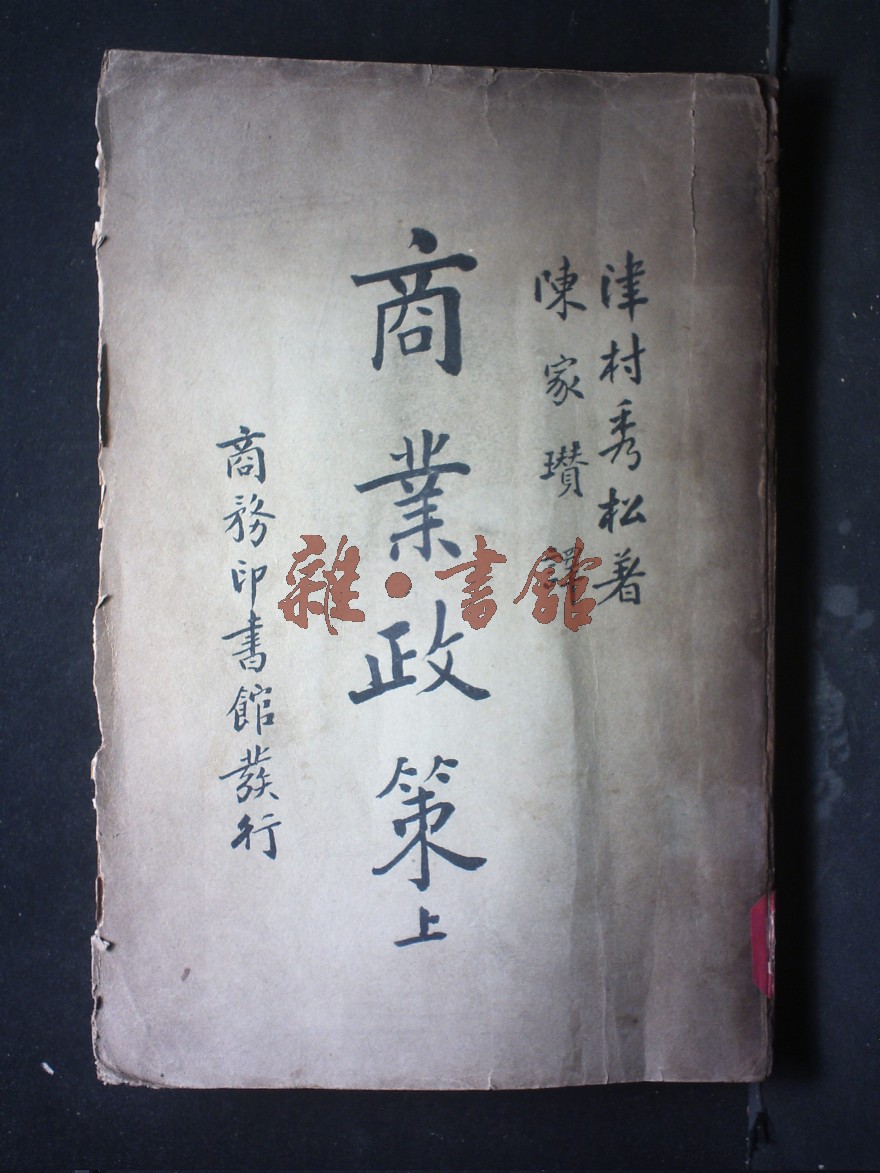 津村秀松著
陳家瓚譯
商業政策上
商務印書館發行
雜·書館